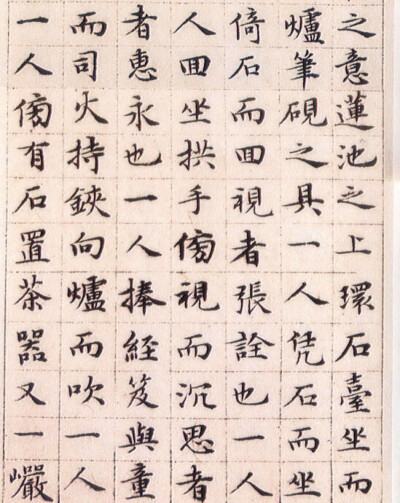 之意蓮池之上環石臺坐而
爐筆硯之具一人凭石而坐
倚石而回視者張詮也一人
人回坐拱手傍視而沉思者
者惠永也一人捧經笈與童
而司火持鋏向爐而吹一人
一人傍有石置茶器又一巗